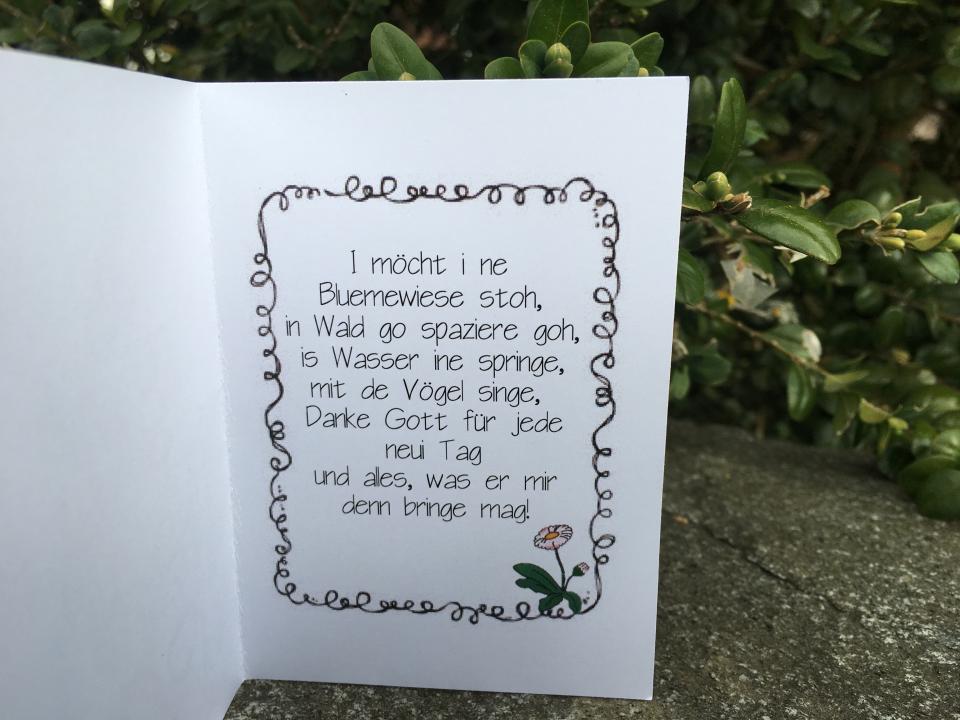 I möcht i ne
Bluemewiese stoh,
in Wald go spaziere goh,
is Wasser ine springe,
mit de Vögel singe,
Danke Gott für jede
neui Tag
und alles, was er mir
denn bringe mag!